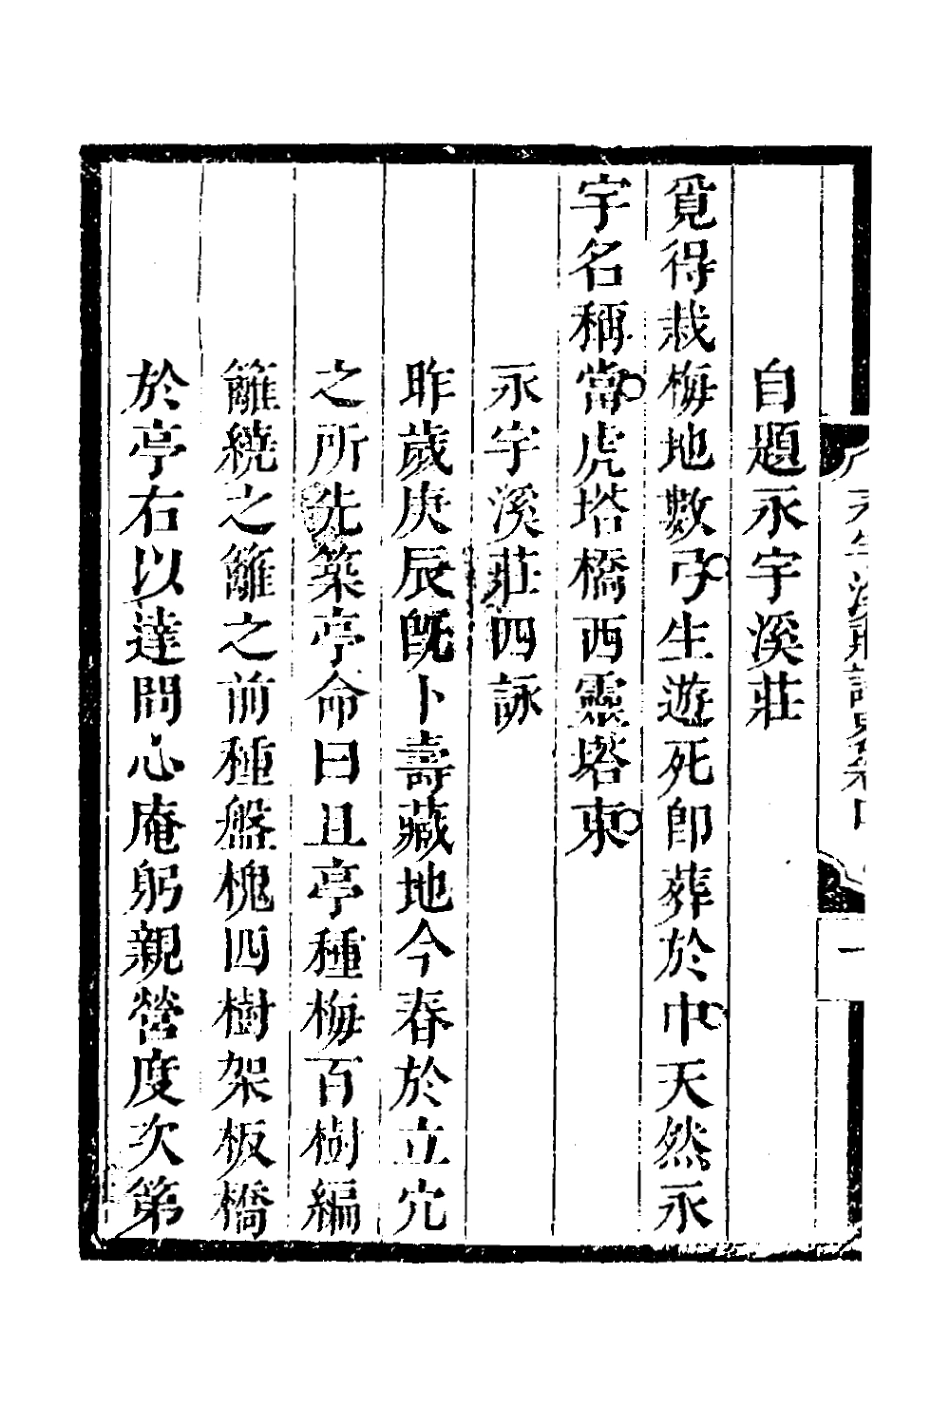 自題永宇溪莊
覓得栽梅地數弓生遊死卽葬於中天然永
宇名稱當虎塔橋西靈塔東
永宇溪莊四詠
昨歲庚辰旣卜壽藏地今春於立穴
之所先築亭命曰且亭種梅百樹編
籬繞之籬之前種盤槐四樹架板橋
於亭右以達問心庵躬親營度次第